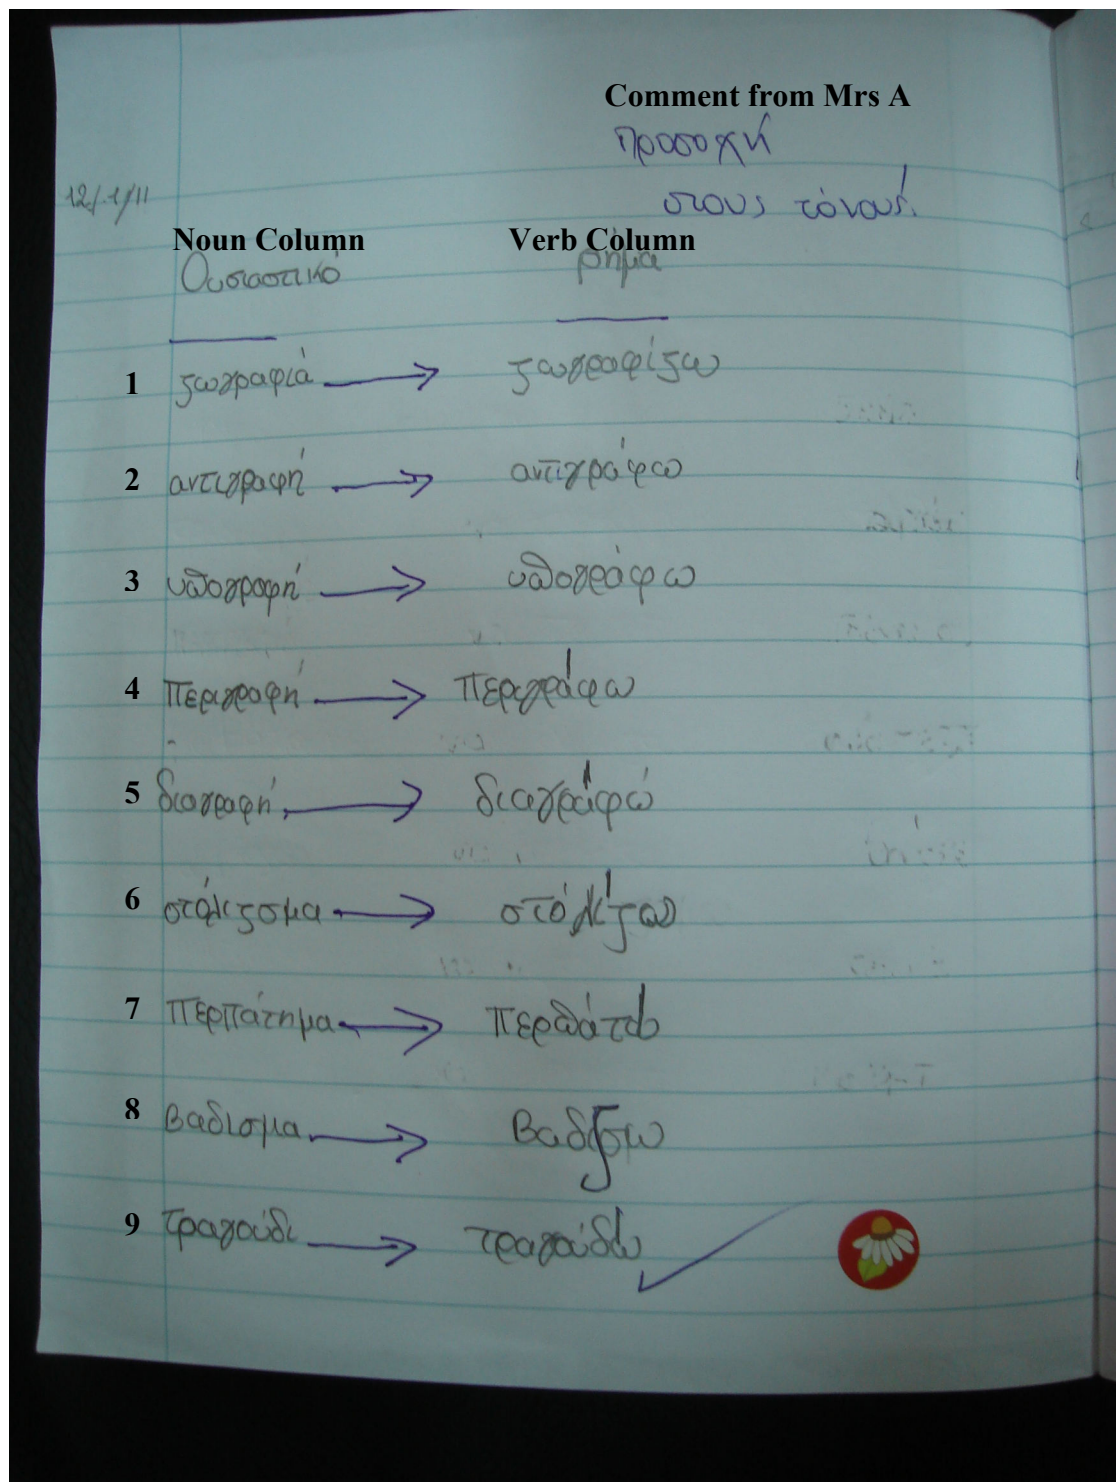 Comment from Mrs A
προσοχή
12/1/11
στους τόνους!
Noun Column Verb Column
Ουσιαστικό ρήμα
1 ζωγραφιά → ζωγραφίζω
2 αντιγραφή → αντιγράφω
3 υπογραφή → υπογράφω
4 περιγραφή → περιγράφω
5 διαγραφή → διαγράφώ
6 στόλιζσμα → στόλίζω
7 περπάτημα → περπάτώ
8 βαδισμα → βαδίζω
9 τραγούδι → τραγούδώ